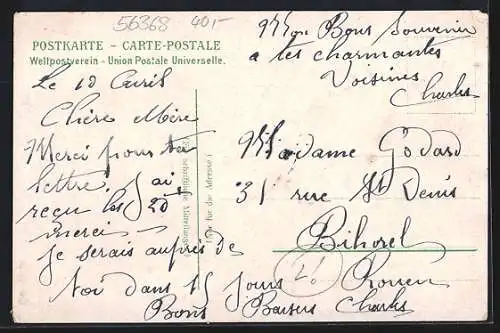 56368 40,-
POSTKARTE - CARTE-POSTALE
Weltpostverein - Union Postale Universelle.
Le 10 Avril
Chère Mère
Merci pour ta
lettre. J'ai
reçu les 20
merci
je serais auprès de
toi dans 15 jours
Bons Baisers Charles
Mon Bons Souvenir
a tes charmantes
Voisines
Charles
(Für schriftliche Mitteilungen)
(Nur für die Adresse)
Madame Godard
31 rue St Denis
Bihorel
Rouen